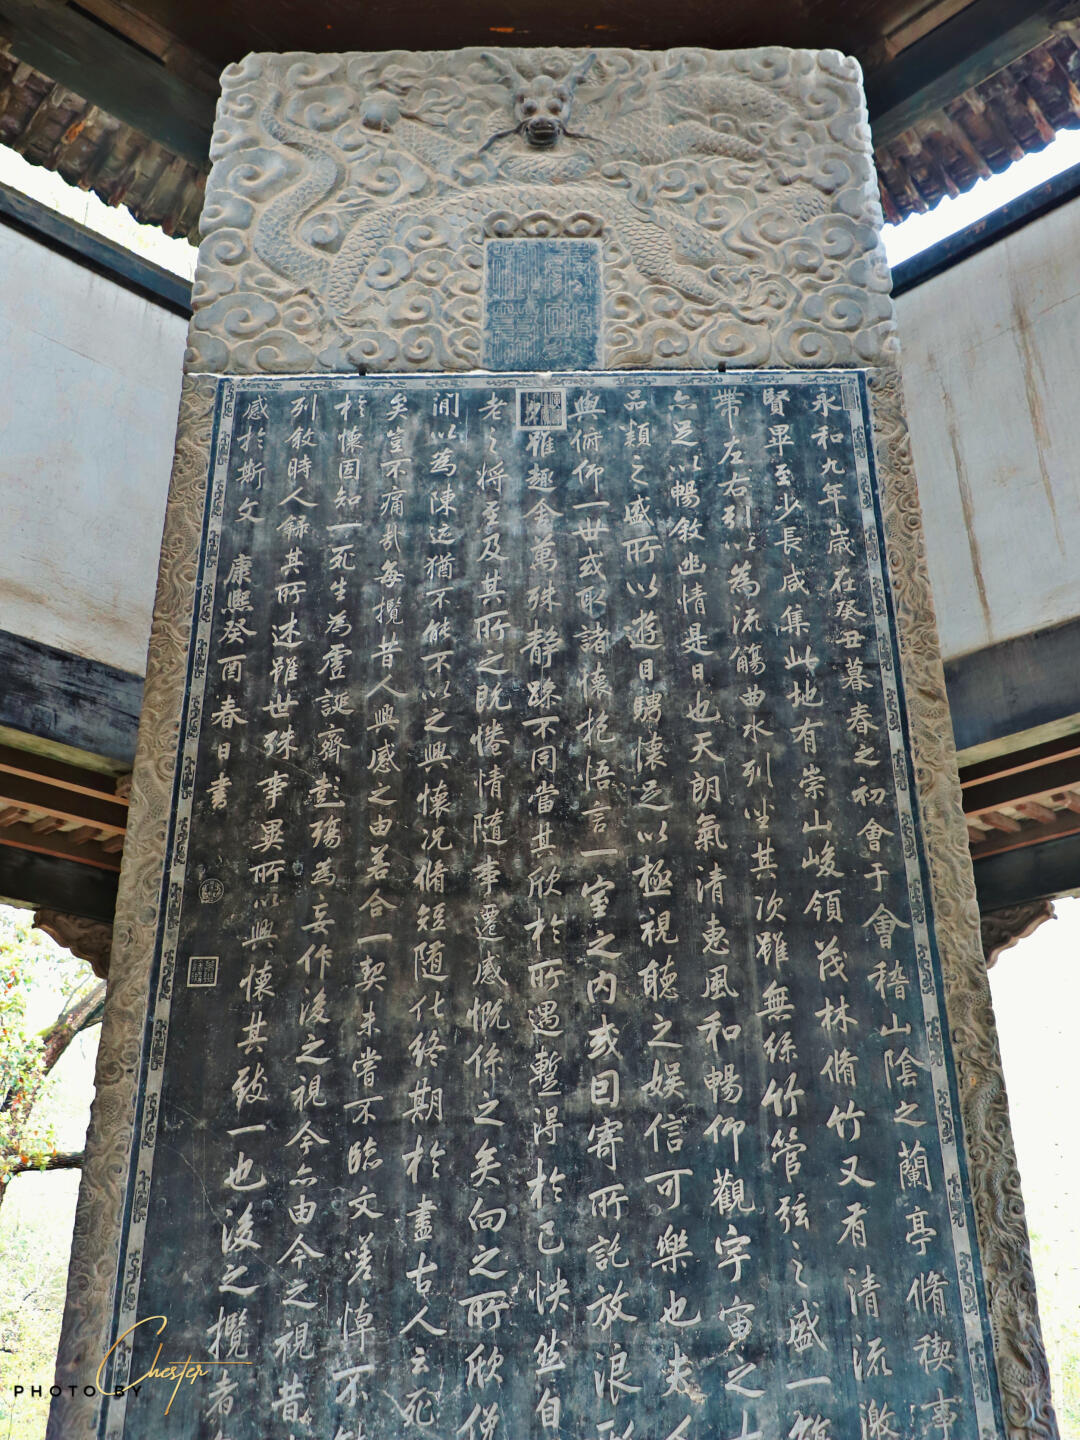 永和九年歲在癸丑暮春之初會于會稽山陰之蘭亭脩稧事
賢畢至少長咸集此地有崇山峻領茂林脩竹又有清流激
帶左右引以為流觴曲水列坐其次雖無絲竹管弦之盛一觴
亦足以暢敘幽情是日也天朗氣清惠風和暢仰觀宇宙之大
品類之盛所以遊目騁懷足以極視聽之娛信可樂也夫人
與俯仰一世或取諸懷抱悟言一室之內或因寄所託放浪形
外雖趣舍萬殊靜躁不同當其欣於所遇蹔得於己怏然自
老之將至及其所之既惓情隨事遷感慨係之矣向之所欣俛
閒以為陳迹猶不能不以之興懷況脩短隨化終期於盡古人云死
矣豈不痛哉每攬昔人興感之由若合一契未嘗不臨文嗟悼不能
於懷固知一死生為虛誕齊彭殤為妄作後之視今亦由今之視昔
列敘時人錄其所述雖世殊事異所以興懷其致一也後之攬者
感於斯文 康熙癸酉春日書
PHOTO BY Chester